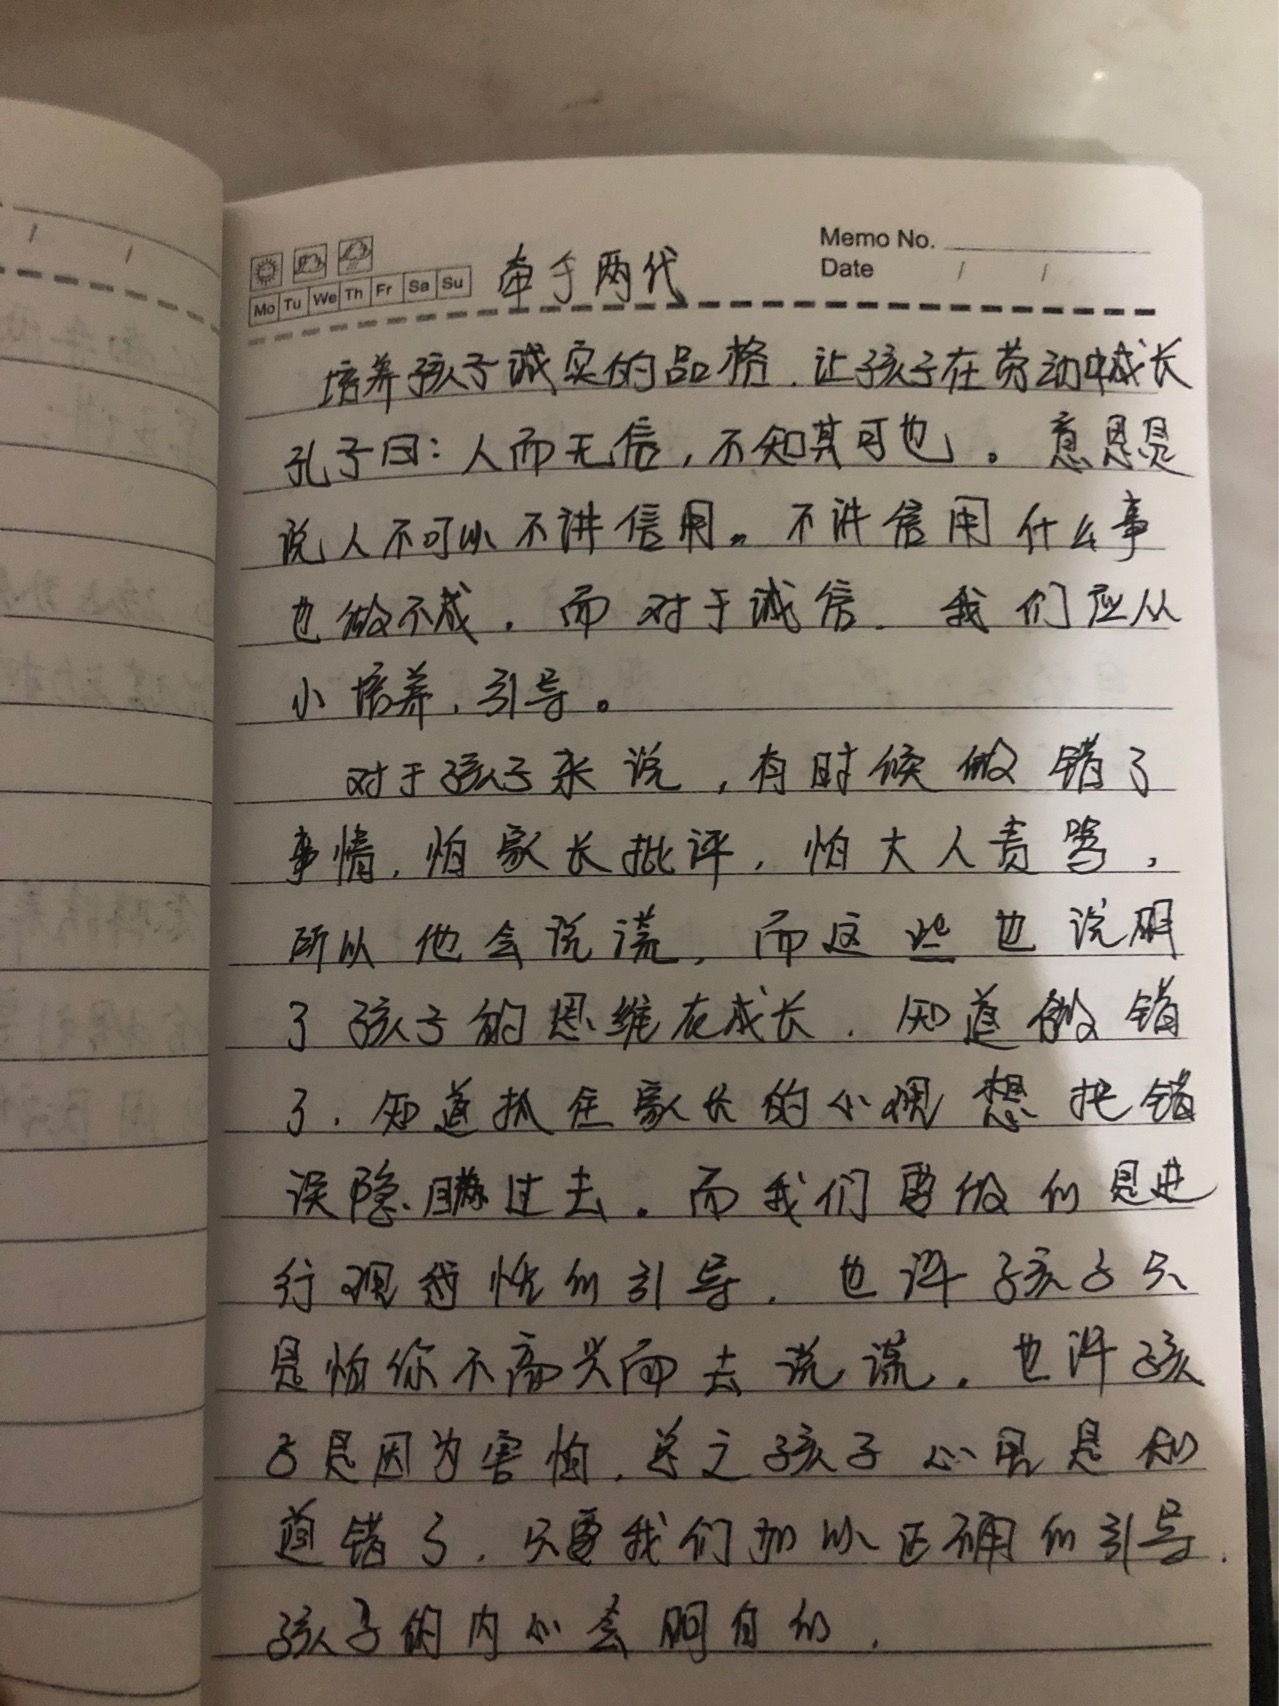 Memo No.
Date / /
Mo Tu We Th Fr Sa Su
牵手两代
培养孩子诚实的品格.让孩子在劳动中成长
孔子曰:人而无信,不知其可也。意思是
说人不可以不讲信用。不讲信用什么事
也做不成.而对于诚信.我们应从
小培养,引导。
对于孩子来说,有时候做错了
事情,怕家长批评,怕大人责骂,
所以他会说谎,而这些也说明
了孩子的思维在成长.知道做错
了.知道抓住家长的小观想把错
误隐瞒过去。而我们要做的是进
行观性的引导.也许孩子只
是怕你不高兴而去说谎.也许孩
子是因为害怕.总之孩子心里是知
道错了.只要我们加以正确的引导.
孩子的内心会明白的.